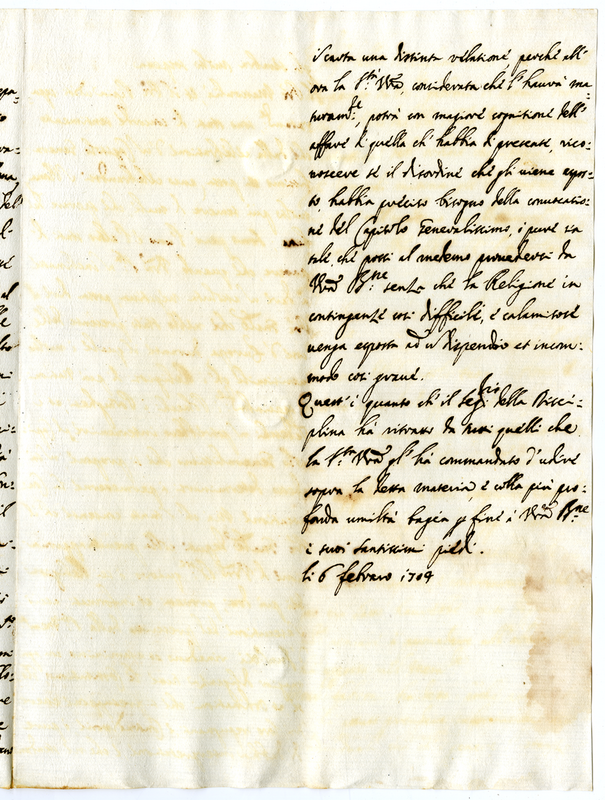 iscarta una distinta relatione, perche all'
ora la S.tà Vra, considerata che l'haurà ma-
turam.te, potrà con magiore cognitione dell'
affare di quella ch'habbia di presente, rico-
noscere se il disordine che gli viene espos-
to, habbia preciso bisogno della conuocatio-
ne del Capitolo Generalissimo, ò pure sia
tale che possi al medemo prouedersi da
Vra B.ne senza che la Religione in
contingenze cosi difficili, e calamitose
uenga esposta ad un dispendio et incom-
modo cosi graue.
Quest'è quanto ch'il Seg.rio della Disci-
plina hà ritratto da tutti quelli che
la S.tà Vra gl'hà commandato d'udire
sopra la detta materia e colla più pro-
fonda umiltà bagia p fine à Vra B.ne
i suoi santissimi piedi.
li 6 febraro 1704